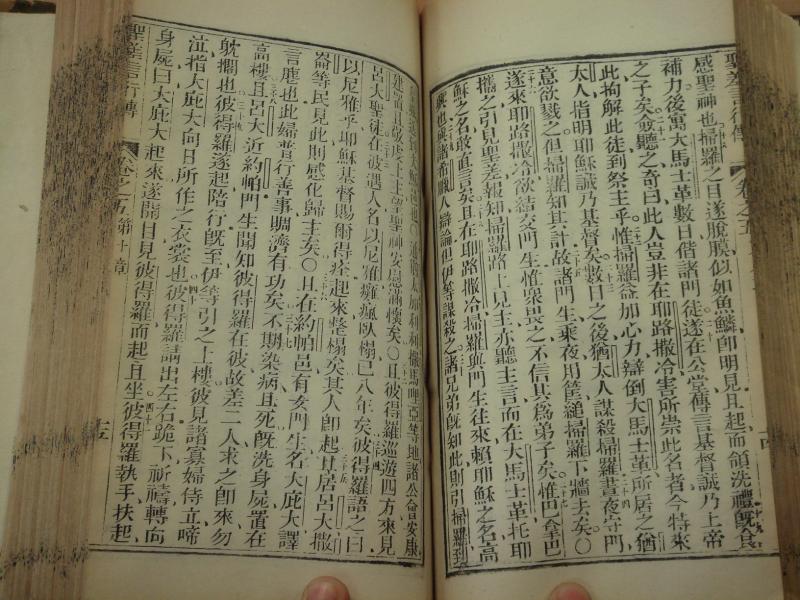 聖差言行傳 卷之五
感聖神也掃羅之目遂脫膜似如魚鱗卽明見且起而領洗禮旣食
補力後寓大馬士革數日偕諸門徒遂在公堂傳言基督誠乃上帝
之子矣僉聽之奇曰此人豈非在耶路撒冷害所崇此名者今特來
此拘解此徒到祭主乎惟掃羅益加心力辯倒大馬士革所居之猶
太人指明耶穌誠乃基督矣數日之後猶太人謀殺掃羅晝夜守門
意欲戮之但掃羅知其計故諸門生乘夜用筐縋掃羅下牆去矣〇
遂來耶路撒冷欲結交門生惟衆畏之不信其爲弟子矣惟巴拿巴
攜之引見聖差報知掃羅路上見主亦聽主言而在大馬士革托耶
穌之名敢直言矣且在耶路撒冷掃羅與門生往來賴耶穌之名高
興也與諸希臘人辯論但伊等謀殺之諸兄弟旣知此則引掃羅到
加利利撒馬哩亞等地諸公會安康
建而且敬虔上主望聖神安慰滿懷矣〇且彼得羅巡遊四方來見
呂大聖徒在彼遇人名以尼雅癱瘋臥榻已八年矣彼得羅語之曰
以尼雅乎耶穌基督賜爾得痊起來整榻矣其人卽起其居呂大撒
崙等民見此則感化歸主矣〇且在約帕邑有女門生名大庇大譯
言鹿也此婦普行善事賙濟有功矣不期染病且死旣洗身屍置在
高樓且呂大近約帕門生聞知彼得羅在彼故差二人求之卽來勿
躭擱也彼得羅遂起陪行旣至伊等引之上樓彼見諸寡婦侍立啼
泣指大庇大向日所作之衣裳也彼得羅請出左右跪下祈禱轉向
身屍曰大庇大起來遂開目見彼得羅而起且坐彼得羅執手扶起
聖差言行傳 卷之五 第十章 十五